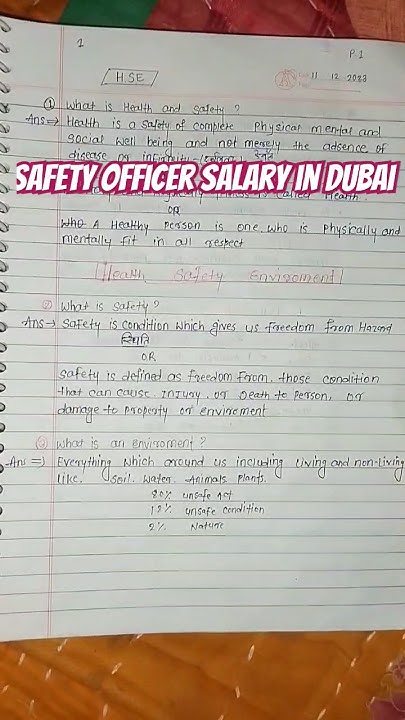 1
P-1
HSE
11 12 2023
① What is Health and Safety ?
Ans⇒ Health is a safety of complete physical mental and
social well being and not merely the adsence of
disease or
SAFETY OFFICER SALARY IN DUBAI
is called Health.
OR
Who A Healthy person is one who is physically and
mentally fit in all respect
Health Safety Enviroment
② What is safety ?
Ans→ Safety is condition which gives us freedom from Hazard
स्थिति
OR
Safety is defined as freedom from those condition
that can cause. Injury. or Death to person, or
damage to property or enviroment
③ What is an enviroment ?
Ans ⇒ Everything which around us including living and non-living
like. Soil. Water. Animals plants.
80% unsafe Act
18% unsafe condition
2% Nature